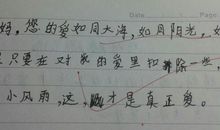 妈，您的爱如同大海，如同阳光，如
只要在对我的爱里扣除一些，
小风雨，这，才是真正爱。